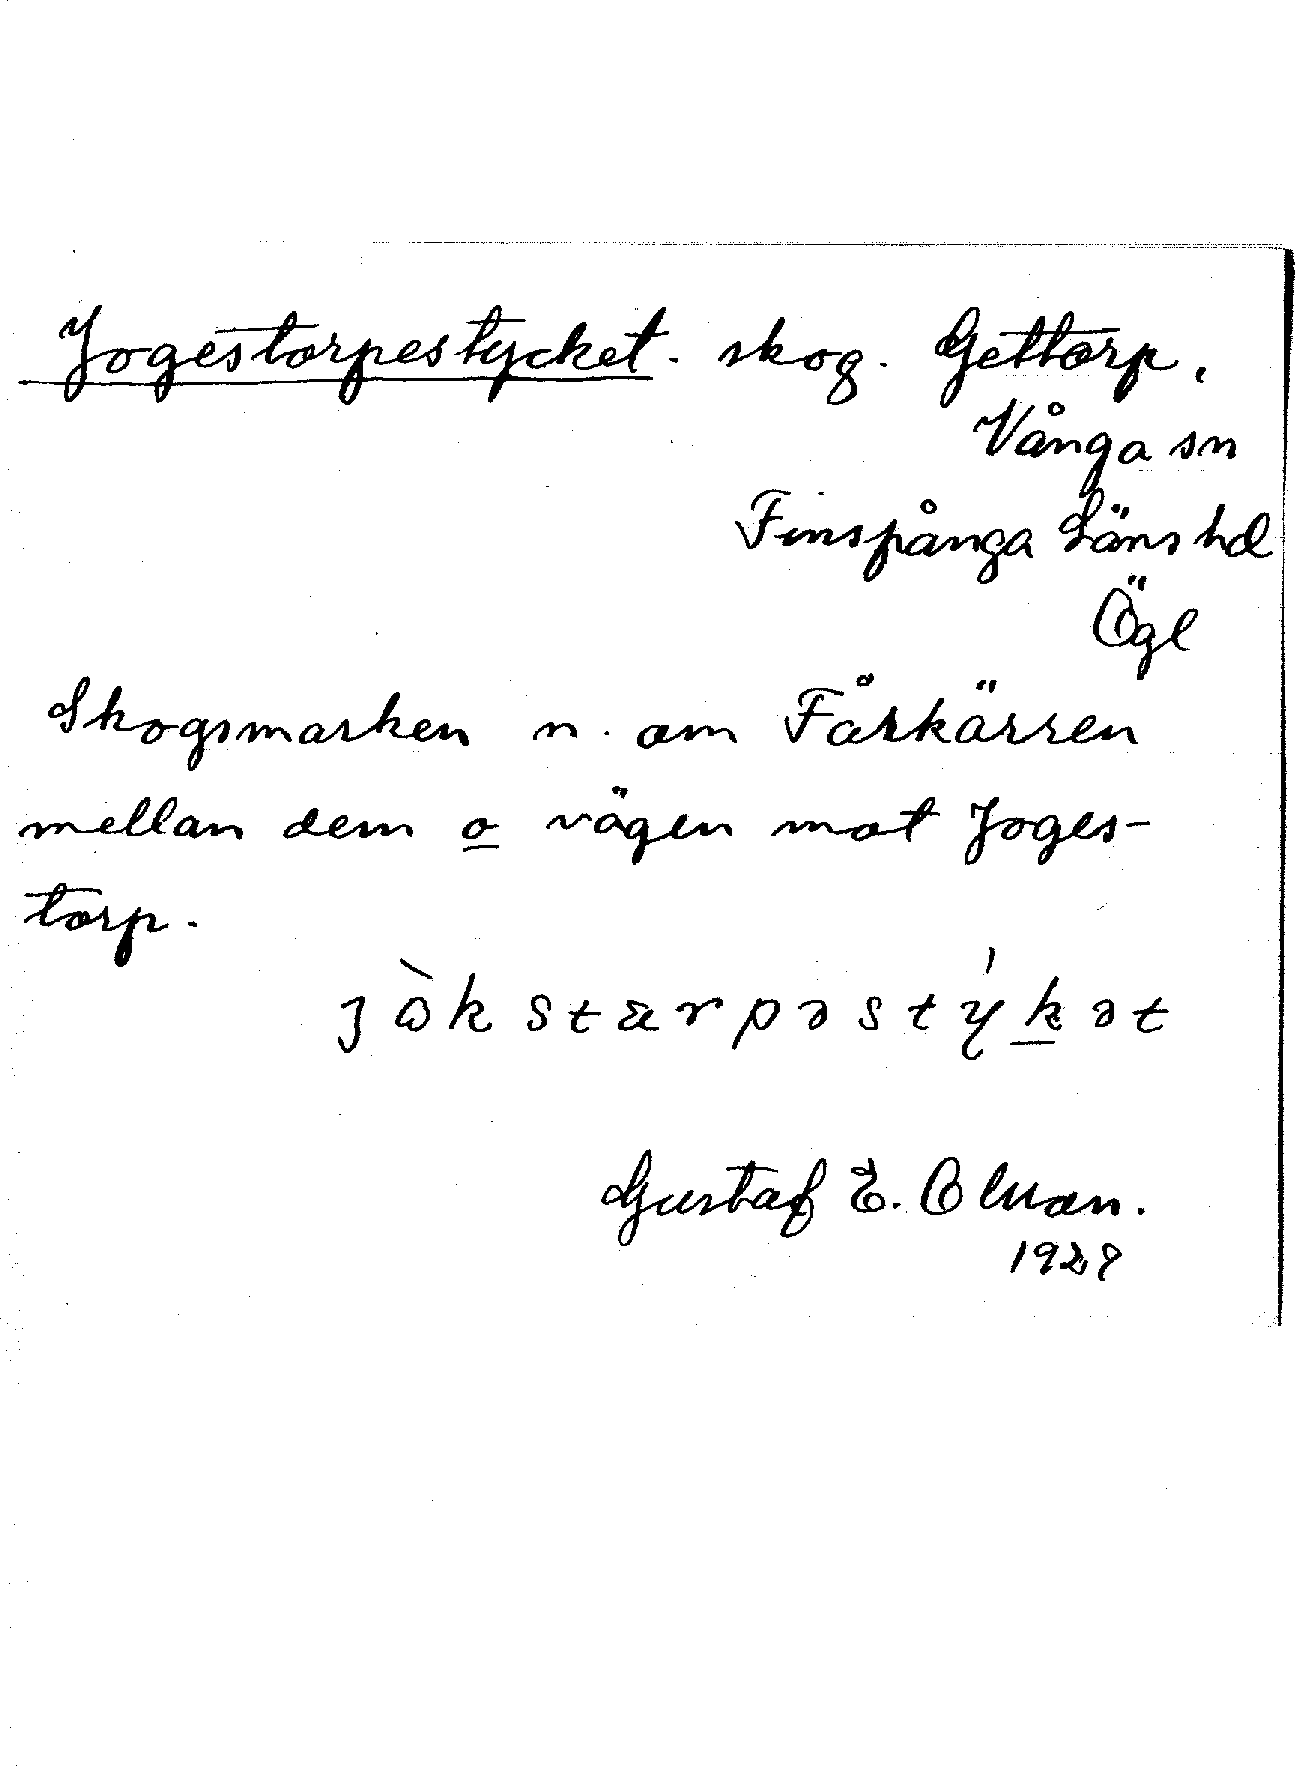 Jogestorpestycket. skog. Gettorp,
Vånga sn
Finspånga Läns hd
Ögl
Skogsmarken n. om Fårkärren
mellan dem o vägen mot Joges-
torp.
Gustaf E. Olson.
1929